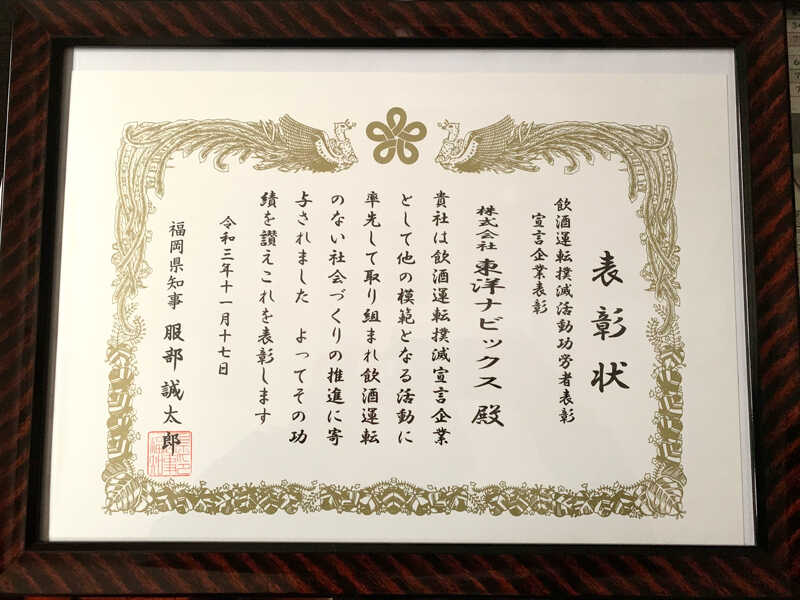 表彰状
飲酒運転撲滅活動功労者表彰
宣言企業表彰
株式会社 東洋ナビックス 殿
貴社は飲酒運転撲滅宣言企業
として他の模範となる活動に
率先して取り組まれ飲酒運転
のない社会づくりの推進に寄
与されました よってその功
績を讃えこれを表彰します
令和三年十一月十七日
福岡県知事 服部誠太郎